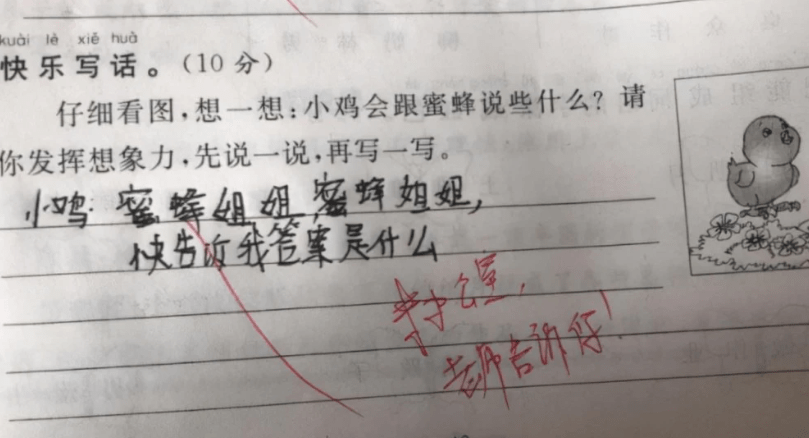 kuài lè xiě huà
快乐写话。(10 分)
仔细看图,想一想:小鸡会跟蜜蜂说些什么?请
你发挥想象力,先说一说,再写一写。
小鸡 蜜蜂姐姐,蜜蜂姐姐,
快告诉我答案是什么
来办公室,
老师告诉你!